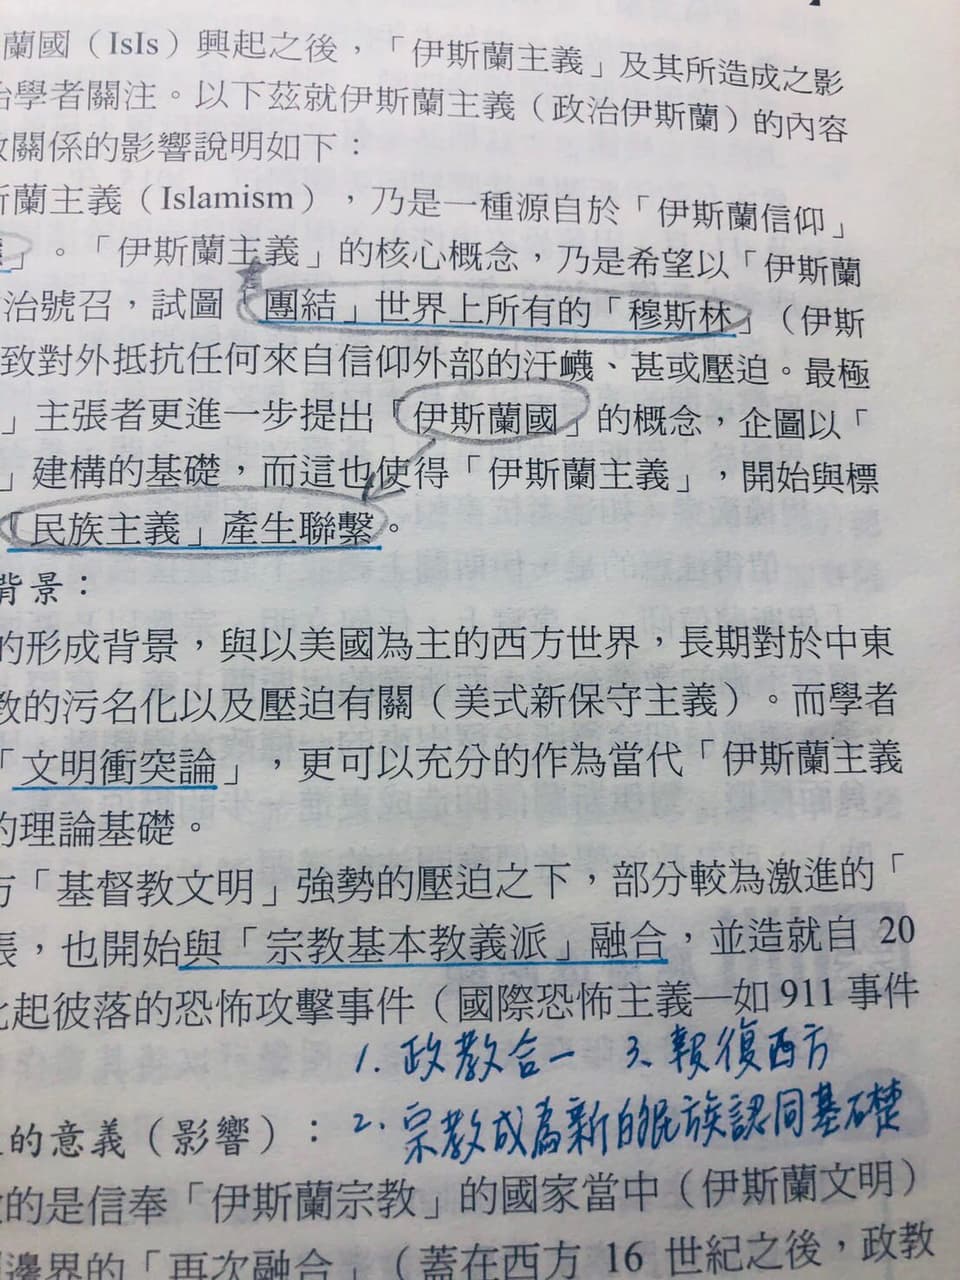 蘭國（IsIs）興起之後，「伊斯蘭主義」及其所造成之影
治學者關注。以下茲就伊斯蘭主義（政治伊斯蘭）的內容
關係的影響說明如下：
斯蘭主義（Islamism），乃是一種源自於「伊斯蘭信仰」
」。「伊斯蘭主義」的核心概念，乃是希望以「伊斯蘭
治號召，試圖「團結」世界上所有的「穆斯林」（伊斯
致對外抵抗任何來自信仰外部的汙衊、甚或壓迫。最極
」主張者更進一步提出「伊斯蘭國」的概念，企圖以「
」建構的基礎，而這也使得「伊斯蘭主義」，開始與標
「民族主義」產生聯繫。
背景：
的形成背景，與以美國為主的西方世界，長期對於中東
教的污名化以及壓迫有關（美式新保守主義）。而學者
「文明衝突論」，更可以充分的作為當代「伊斯蘭主義
的理論基礎。
方「基督教文明」強勢的壓迫之下，部分較為激進的「
張，也開始與「宗教基本教義派」融合，並造就自 20
此起彼落的恐怖攻擊事件（國際恐怖主義—如 911 事件
1. 政教合一 3. 報復西方
的意義（影響）：2. 宗教成為新的民族認同基礎
的是信奉「伊斯蘭宗教」的國家當中（伊斯蘭文明）
邊界的「再次融合」（蓋在西方 16 世紀之後，政教